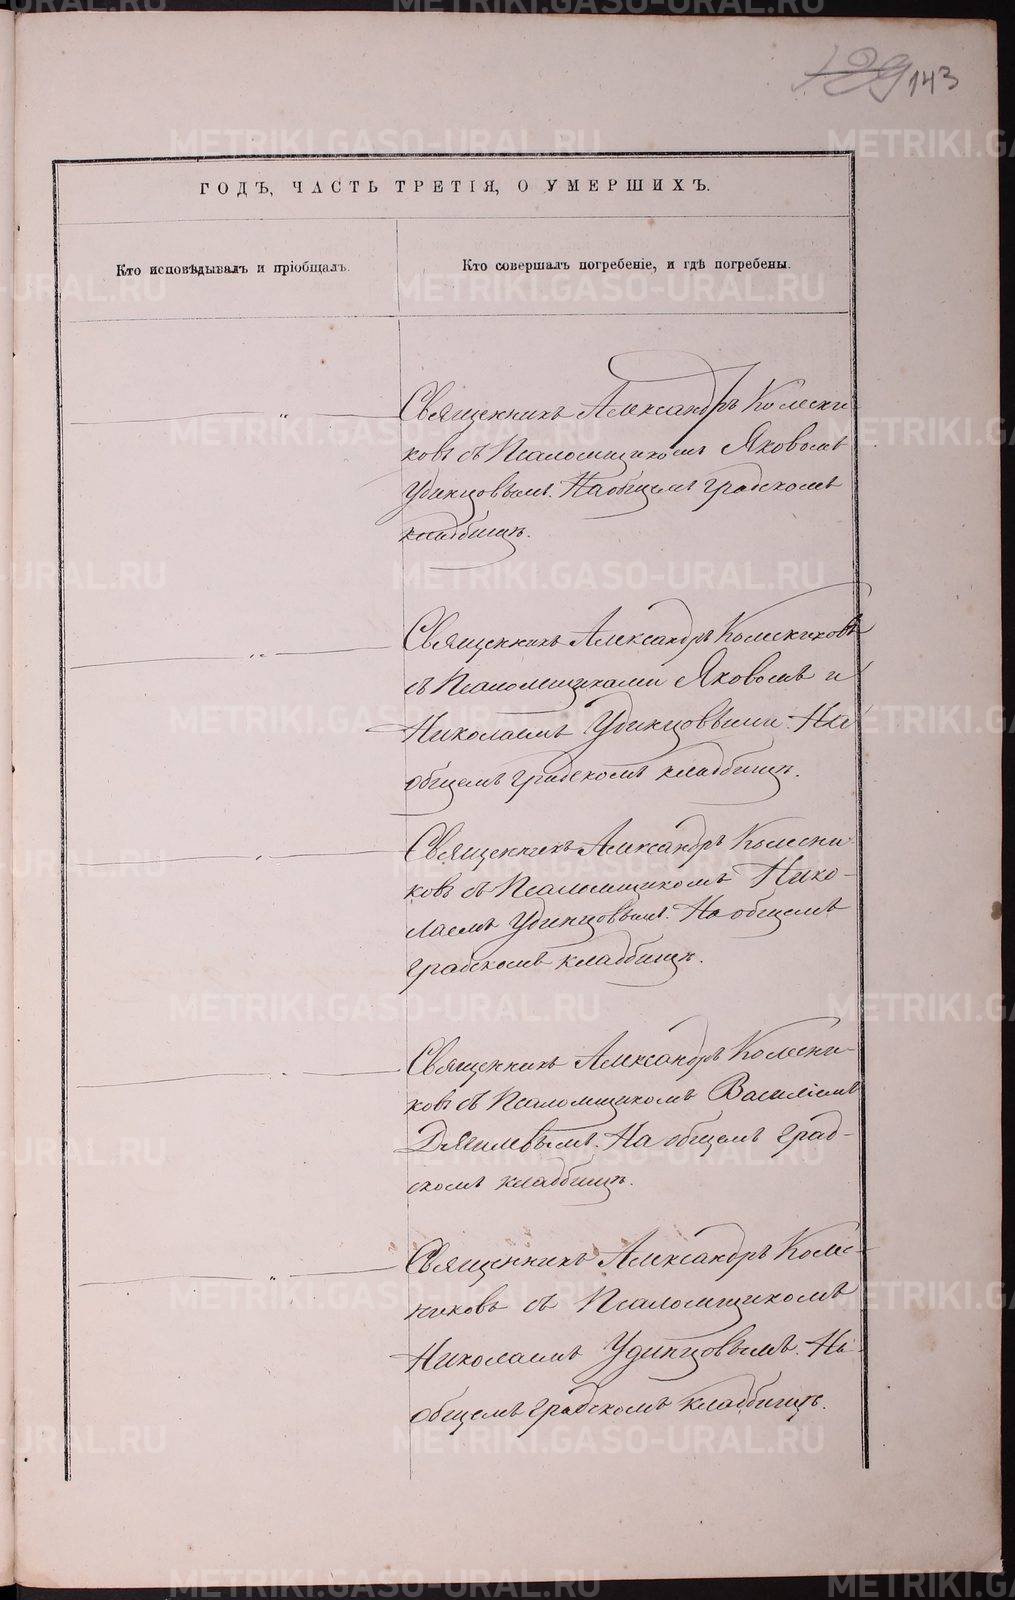 129 143
ГОДЪ, ЧАСТЬ ТРЕТІЯ, О УМЕРШИХЪ.
Кто исповѣдывалъ и пріобщалъ.
Кто совершалъ погребеніе, и гдѣ погребены.
Священникъ Александръ Колесни-
ковъ съ Псаломщикомъ Яковомъ
Удинцовымъ. На общемъ градскомъ
кладбищѣ.
Священникъ Александръ Колесниковъ
съ Псаломщиками Яковомъ и
Николаемъ Удинцовыми. На
общемъ градскомъ кладбищѣ.
Священникъ Александръ Колесни-
ковъ съ Псаломщикомъ Нико-
лаемъ Удинцовымъ. На общемъ
градскомъ кладбищѣ.
Священникъ Александръ Колесни-
ковъ съ Псаломщикомъ Василіемъ
Дягилевымъ. На общемъ град-
скомъ кладбищѣ.
Священникъ Александръ Колес-
никовъ съ Псаломщикомъ
Николаемъ Удинцовымъ. На
общемъ градскомъ кладбищѣ.
METRIKI.GASO-URAL.RU